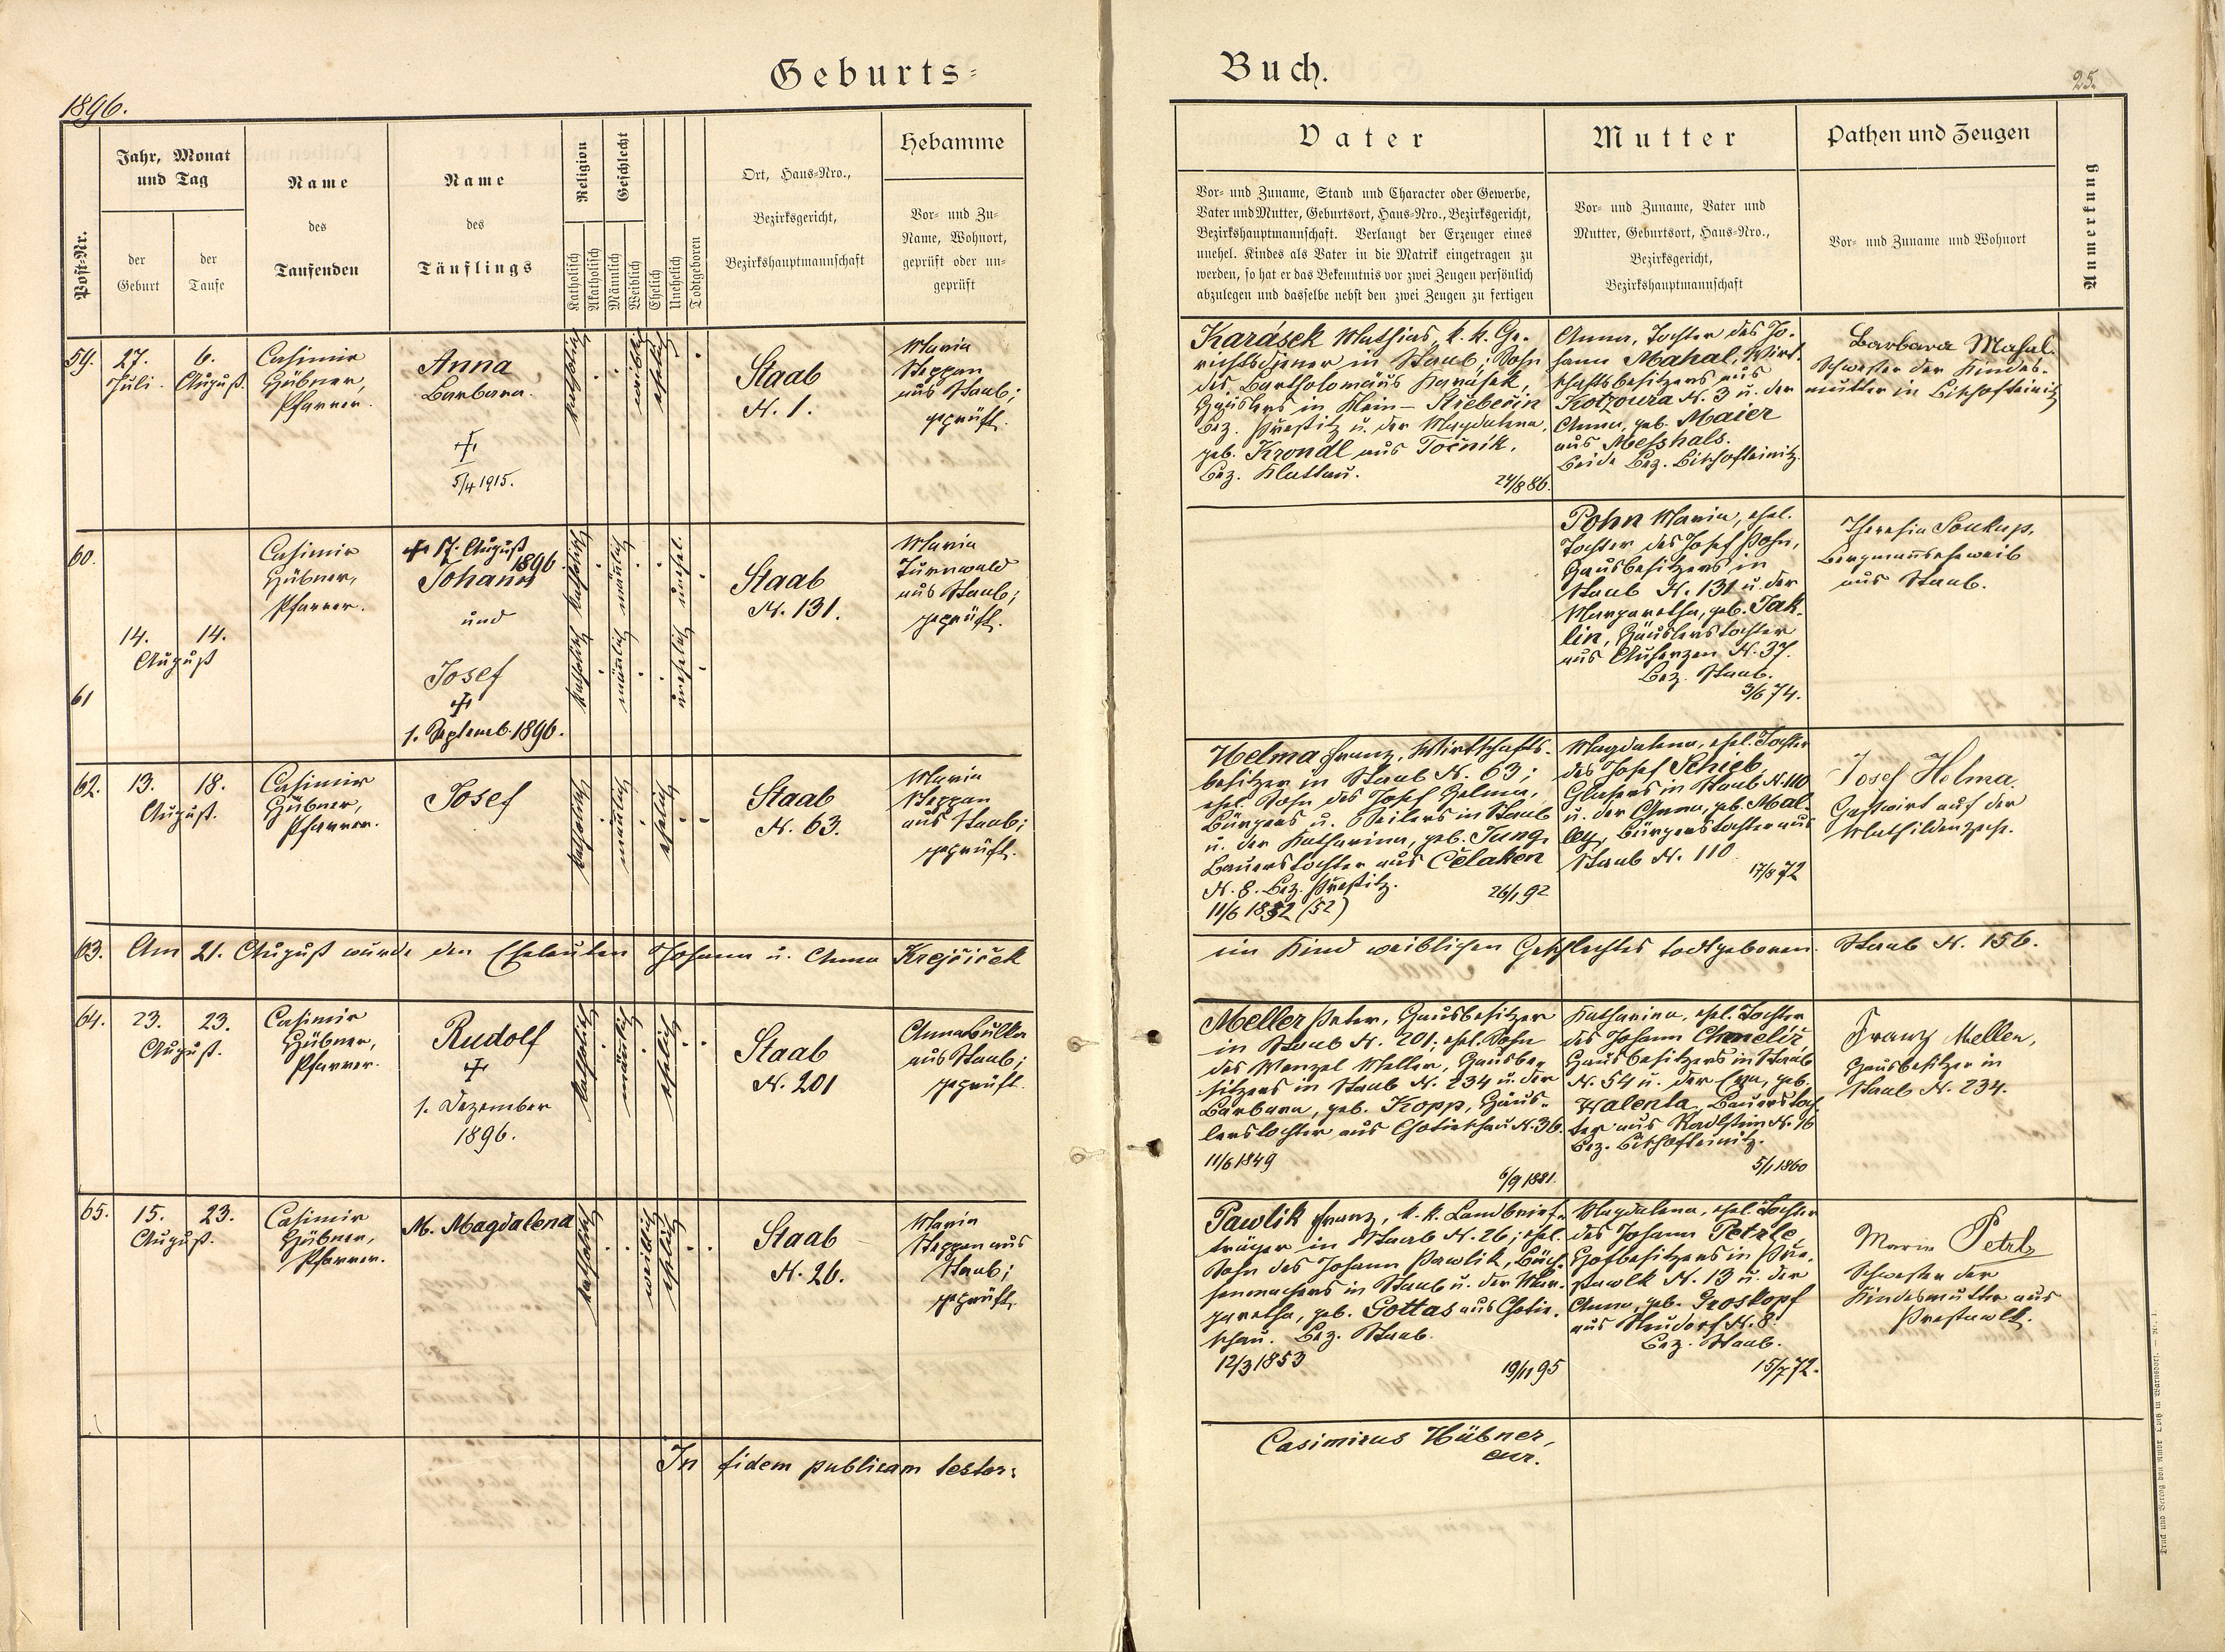 Geburts-
1896.
Post-Nr.
Jahr, Monat
und Tag
der
Geburt
der
Taufe
Name
des
Taufenden
Name
des
Täuflings
Religion
Katholisch
Akatholisch
Geschlecht
Männlich
Weiblich
Ehelich
Unehelich
Todtgeboren
Ort, Haus-Nro.,
Bezirksgericht,
Bezirkshauptmannschaft
Hebamme
Vor- und Zu-
Name, Wohnort,
geprüft oder un-
geprüft
59.
27.
Juli.
6.
August.
Casimir
Hübner,
Pfarrer.
Anna
Barbara.
5/4 1915.
katholisch
weiblich
ehelich
Staab
N. 1.
Maria
Steppan
aus Staab;
geprüft.
60.
61
14.
14.
August
Casimir
Hübner,
Pfarrer.
17. August
1896.
Johann
und
Josef
1. Septemb. 1896.
katholisch
katholisch
männlich
männlich
unehel.
unehelich
Staab
N. 131.
Maria
Turnwald
aus Staab;
geprüft.
62.
13.
18.
August.
Casimir
Hübner,
Pfarrer.
Josef
katholisch
männlich
ehelich
Staab
N. 63.
Maria
Steppan
aus Staab;
geprüft.
63. Am 21. August wurde den Eheleuten Johann u. Anna Krejčiček
64.
23.
23.
August.
Casimir
Hübner,
Pfarrer.
Rudolf
1. Dezember
1896.
katholisch
männlich
ehelich
Staab
N. 201
Anna Bulka
aus Staab;
geprüft.
65.
15.
23.
August.
Casimir
Hübner,
Pfarrer.
M. Magdalena
katholisch
weiblich
ehelich
Staab
N. 26.
Maria
Steppan aus
Staab;
geprüft.
In fidem publicam testor:
Buch.
25.
Vater
Vor- und Zuname, Stand und Character oder Gewerbe,
Vater und Mutter, Geburtsort, Haus-Nro., Bezirksgericht,
Bezirkshauptmannschaft. Verlangt der Erzeuger eines
unehel. Kindes als Vater in die Matrik eingetragen zu
werden, so hat er das Bekenntnis vor zwei Zeugen persönlich
abzulegen und dasselbe nebst den zwei Zeugen zu fertigen
Mutter
Vor- und Zuname, Vater und
Mutter, Geburtsort, Haus-Nro.,
Bezirksgericht,
Bezirkshauptmannschaft
Pathen und Zeugen
Vor- und Zuname und Wohnort
Anmerkung
Karásek Mathias, k. k. Ge-
richtsdiener in Staab; Sohn
des Bartholomäus Karásek,
Häuslers in Klein-Střebečin
Bez. Přestitz u. der Magdalena,
geb. Krondl aus Točnik.
Bez. Klattau.
24/8 86.
Anna, Tochter des Jo-
hann Mahal, Wirt-
schaftsbesitzers aus
Kotzoura N. 3 u. der
Anna, geb. Maier
aus Messhals.
Beide Bez. Bischofteinitz.
Barbara Mahal.
Schwester der Kindes-
mutter in Bischofteinitz
Pohn Maria, ehel.
Tochter des Josef Pohn,
Hausbesitzers in
Staab N. 131 u. der
Margaretha, geb. Jak-
lin, Häuslerstochter
aus Auherzen N. 37.
Bez. Staab.
3/6 74.
Theresia Soukup,
Bergmannseheweib
aus Staab.
Helma Franz, Wirtschafts-
besitzer in Staab N. 63;
ehel. Sohn des Josef Helma,
Bürgers u. Seilers in Staab
u. der Katharina, geb. Jung,
Bauerstochter aus Čelaken
N. 8. Bez. Přestitz.
26/1 92
11/6 1852 (52)
Magdalena, ehel. Tochter
des Josef Schieb,
Glasers in Staab N. 110
u. der Anna, geb. Mal-
ley, Bürgerstochter aus
Staab N. 110
17/8 72
Josef Helma.
Gastwirt auf der
Mathildenzeche.
ein Kind weiblichen Geschlechtes todtgeboren. Staab N. 156.
Meller Peter, Hausbesitzer
in Staab N. 201; ehel. Sohn
des Wenzel Meller, Hausbe-
sitzers in Staab N. 234 u. der
Barbara, geb. Kopp, Häus-
lerstochter aus Chotieschau N. 36.
11/6 1849
6/9 1881.
Katharina, ehel. Tochter
des Johann Chmeliř,
Hausbesitzers in Staab
N. 54 u. der Eva, geb.
Walenta, Bauerstoch-
ter aus Radlstein N. 16
Bez. Bischofteinitz.
5/1 1860
Franz Meller,
Hausbesitzer in
Staab N. 234.
Pawlik Franz, k. k. Landbrief-
träger in Staab N. 26; ehel.
Sohn des Johann Pawlik, Büch-
senmachers in Staab u. der Mar-
garetha, geb. Gottas aus Chotie-
schau. Bez. Staab.
12/3 1853
19/11 95
Magdalena, ehel. Tochter
des Johann Petrle,
Hofbesitzers in Pře-
stawlk N. 13 u. der
Anna, geb. Groskopf
aus Neudorf N. 8.
Bez. Staab.
15/7 72.
Marie Petrlz
Schwester der
Kindesmutter aus
Prestawlk.
Casimirus Hübner,
cur.